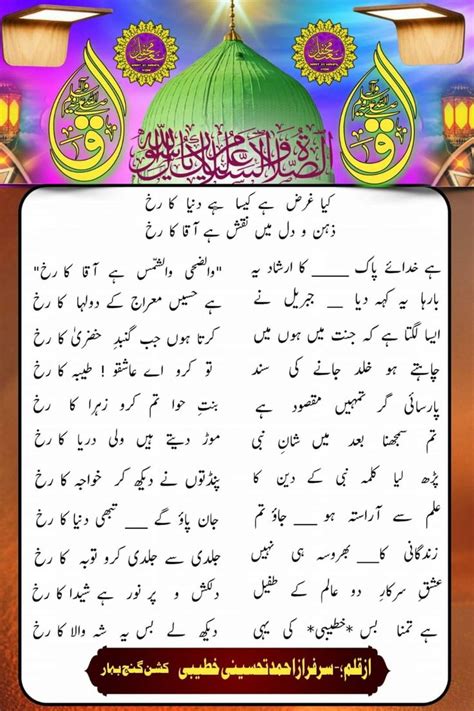 محمد ﷺ
محمد ﷺ
الصلاۃ والسلام علیک یا رسول اللہ
کیا غرض ہے کیسا ہے دنیا کا رخ
ذہن و دل میں نقش ہے آقا کا رخ
ہے خدائے پاک ____ کا ارشاد یہ "والضحیٰ والشمس ہے آقا کا رخ"
بارہا یہ کہہ دیا __ جبریل نے ہے حسیں معراج کے دولہا کا رخ
ایسا لگتا ہے کہ جنت میں ہوں میں کرتا ہوں جب گنبدِ خضریٰ کا رخ
چاہتے ہو خلد جانے کی سند تو کرو اے عاشقو! طیبہ کا رخ
پارسائی گر تمہیں مقصود ہے بنتِ حوا تم کرو زہرا کا رخ
تم سمجھنا بعد میں شانِ نبی موڑ دیتے ہیں ولی دریا کا رخ
پڑھ لیا کلمہ نبی کے دین کا پنڈتوں نے دیکھ کر خواجہ کا رخ
علم سے آراستہ ہو ___ جاؤ تم جان پاؤ گے ___ تبھی دنیا کا رخ
زندگانی کا__ بھروسہ ہی نہیں جلدی سے جلدی کرو توبہ کا رخ
عشقِ سرکارِ دو عالم کے طفیل دلکش و پر نور ہے شیدا کا رخ
ہے تمنا بس *خطیبی* کی یہی دیکھ لے بس یہ شہ والا کا رخ
از قلم:- سرفراز احمد تحسینی خطیبی کشن گنج بہار